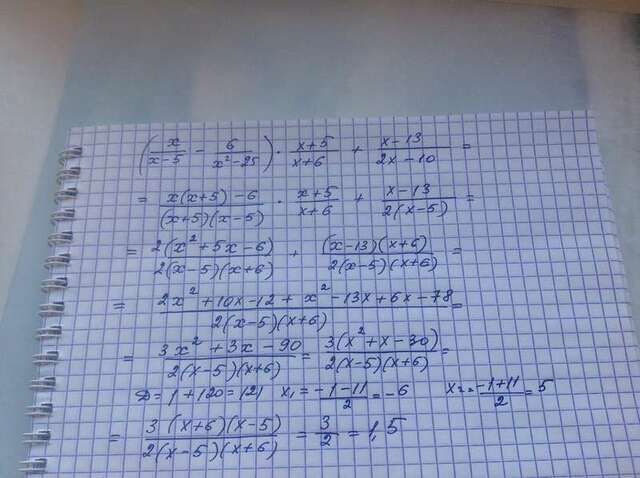 (x/(x-5) - 6/(x²-25)) · (x+5)/(x+6) + (x-13)/(2x-10) =
= (x(x+5)-6)/((x+5)(x-5)) · (x+5)/(x+6) + (x-13)/(2(x-5)) =
= 2(x²+5x-6)/(2(x-5)(x+6)) + (x-13)(x+6)/(2(x-5)(x+6)) =
= (2x²+10x-12+x²-13x+6x-78)/(2(x-5)(x+6)) =
= (3x²+3x-90)/(2(x-5)(x+6)) = 3(x²+x-30)/(2(x-5)(x+6)) =
D=1+120=121 x₁=(-1-11)/2=-6 x₂=(-1+11)/2=5
= 3(x+6)(x-5)/(2(x-5)(x+6)) = 3/2 = 1,5